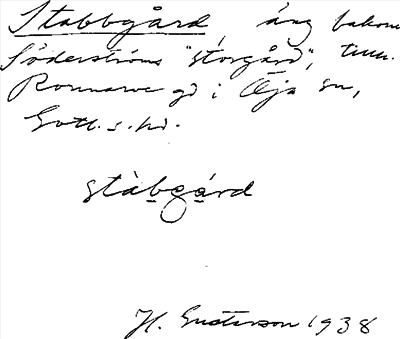 Stabbgård, äng bakom
Söderströms "storgård",
Ronnarve gd i Öja sn,
Gotl. s. hd.
stàbgárd
H. Gustavson 1938